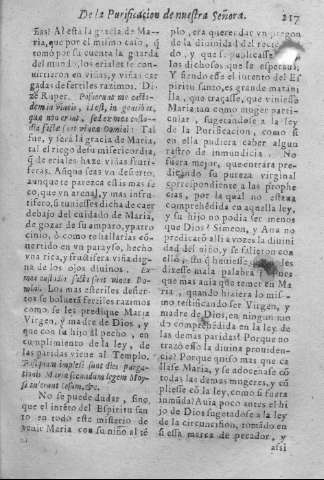 De la Purificacion de nuestra Señora. 217
llas! Al està la gracia de Ma-
ria, que por el mismo caso, q̃
tomó por su cuenta la guarda
del mundo, los eriales te con-
uirtieron en viñas, y viñas car
gadas de fertiles razimos. Di-
ze Ruper. Posuerunt me custo-
dem in vineis, idest, in gentibus,
que non erant, sed ex mea custo-
dia factæ sunt vinea Domini: Tal
fue, y serà la gracia de Maria,
tal el riego de su misericordia,
q̃ de eriales haze viñas fruti-
feras. Aunq̃ seas vn desierto,
aunque te parezca estàs mas se
co, que vn arenal, y mas infru-
tifero, si tuuiesses dicha de caer
debajo del cuidado de Maria,
de gozar de su amparo, y patro
cinio, ó como te hallarias có-
uertido en vn parayso, hecho
vna rica, y frutifera viña dig-
na de los ojos diuinos. Ex
mea custodia factæ sunt vinea Do-
mini. Los mas esteriles desier-
tos se boluerà fertiles razimos
como se les predique Maria
Virgen, ÿ madre de Dios, y
que con su hijo al pecho, en
cumplimiento de la ley, de
las paridas viene al Templo.
Postquam impleti sunt dies purga-
tionis Mariæ secundum legem Moy-
si tulerunt Iesum, &c.
No se puede dudar, sino,
que el intéto del Espiritu san
to en todo este misterio de
venir Maria con su niño al té
plo, era querer dar vn pregon
de la diuinidad del recie
do, y que se publicasse
los dichosos que la esperauã,
Y siendo esse el intento del Es
piritu santo, es grande marani
lla, que traçasse, que viniesse
Maria tan como muger parti-
cular, sugetandose a la ley
de la Purificacion, como si
en ella pudiera caber algun
rastro de inmundicia. No
fuera mejor, que entrára pre-
dicando su pureza virginal
correspondiente a las prophe
cias, por la qual no estaua
comprehédida en aquella ley,
y su hijo no podia ser menos
que Dios? Simeon, y Ana no
predicaró alli a vozes la diuini
dad del niño, y se salieron con
ello, sin q̃ huuiesse quien les
dixesse mala palabra? Pues
que mas auia que temer en Ma
ria, quando hiziera lo mis-
mo testificando ser Virgen, y
madre de Dios, en ningun mo
do comprehédida en la ley de
las demas paridas? Porque no
trazò esso la diuina prouiden-
cia? Porque quiso mas que ca
llase Maria, y se adocenase có
todas las demas mugeres, y cú
pliesse có la ley, como si fuera
inmúda? Auia poco antes el hi
jo de Dios sugetadose a la ley
de la circuncision, tomado en
si essa marca de pecador, y
assi